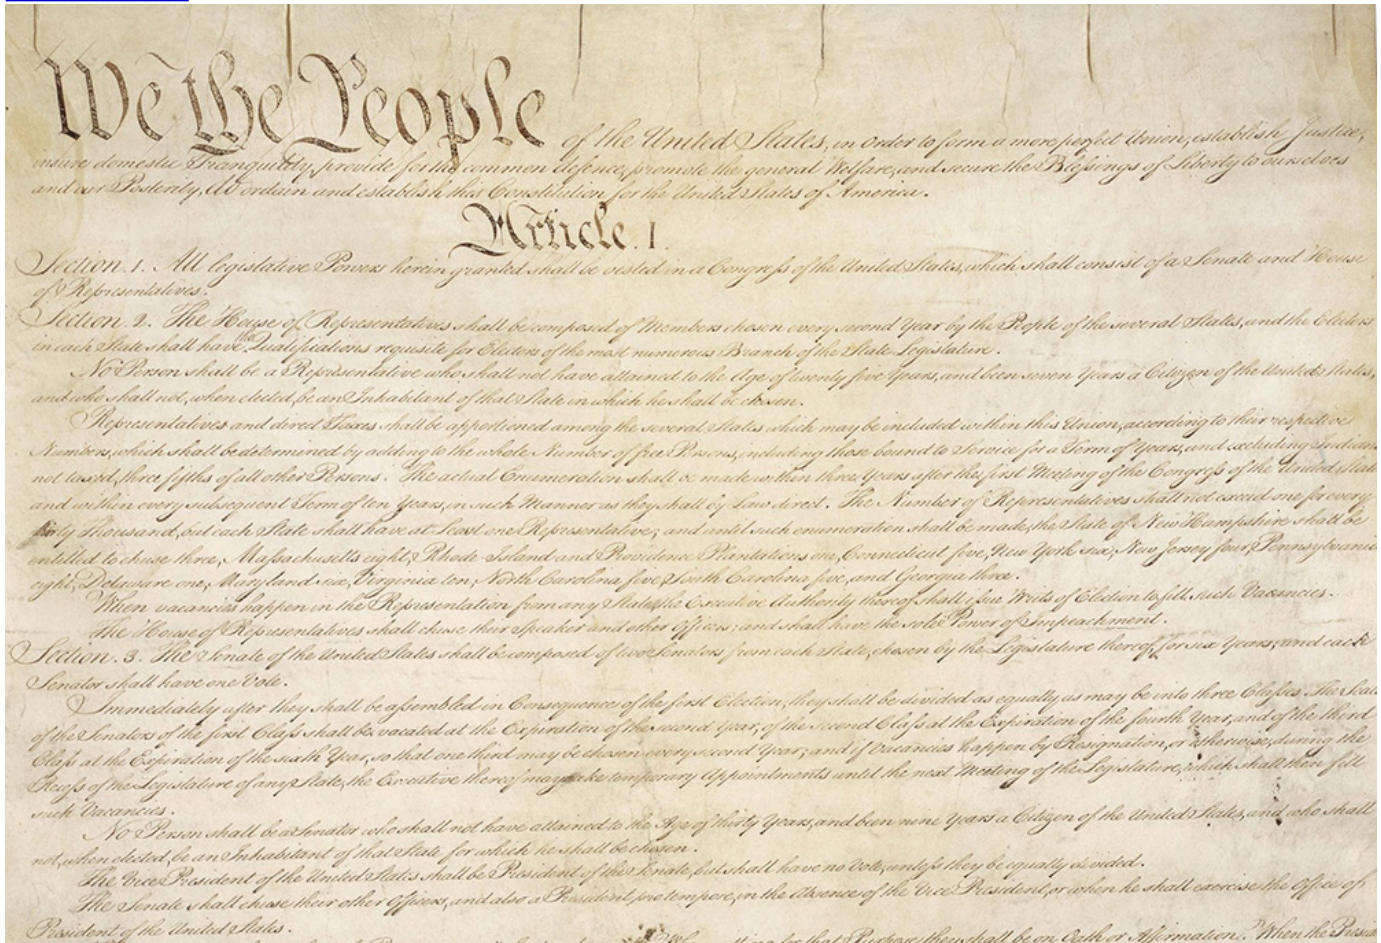 We the People of the United States, in Order to form a more perfect Union, establish Justice,
insure domestic Tranquility, provide for the common defence, promote the general Welfare, and secure the Blessings of Liberty to ourselves
and our Posterity, do ordain and establish this Constitution for the United States of America.
Article. I.
Section. 1. All legislative Powers herein granted shall be vested in a Congress of the United States, which shall consist of a Senate and House
of Representatives.
Section. 2. The House of Representatives shall be composed of Members chosen every second Year by the People of the several States, and the Electors
in each State shall have the Qualifications requisite for Electors of the most numerous Branch of the State Legislature.
No Person shall be a Representative who shall not have attained to the Age of twenty five Years, and been seven Years a Citizen of the United States,
and who shall not, when elected, be an Inhabitant of that State in which he shall be chosen.
Representatives and direct Taxes shall be apportioned among the several States which may be included within this Union, according to their respective
Numbers, which shall be determined by adding to the whole Number of free Persons, including those bound to Service for a Term of Years, and excluding Indians
not taxed, three fifths of all other Persons. The actual Enumeration shall be made within three Years after the first Meeting of the Congress of the United States,
and within every subsequent Term of ten Years, in such Manner as they shall by Law direct. The Number of Representatives shall not exceed one for every
thirty Thousand, but each State shall have at Least one Representative; and until such enumeration shall be made, the State of New Hampshire shall be
entitled to chuse three, Massachusetts eight, Rhode-Island and Providence Plantations one, Connecticut five, New York six, New Jersey four, Pennsylvania
eight, Delaware one, Maryland six, Virginia ten, North Carolina five, South Carolina five, and Georgia three.
When vacancies happen in the Representation from any State, the Executive Authority thereof shall issue Writs of Election to fill such Vacancies.
The House of Representatives shall chuse their Speaker and other Officers; and shall have the sole Power of Impeachment.
Section. 3. The Senate of the United States shall be composed of two Senators from each State, chosen by the Legislature thereof, for six Years; and each
Senator shall have one Vote.
Immediately after they shall be assembled in Consequence of the first Election, they shall be divided as equally as may be into three Classes. The Seats
of the Senators of the first Class shall be vacated at the Expiration of the second Year, of the second Class at the Expiration of the fourth Year, and of the third
Class at the Expiration of the sixth Year, so that one third may be chosen every second Year; and if Vacancies happen by Resignation, or otherwise, during the
Recess of the Legislature of any State, the Executive thereof may make temporary Appointments until the next Meeting of the Legislature, which shall then fill
such Vacancies.
No Person shall be a Senator who shall not have attained to the Age of thirty Years, and been nine Years a Citizen of the United States, and who shall
not, when elected, be an Inhabitant of that State for which he shall be chosen.
The Vice President of the United States shall be President of the Senate, but shall have no Vote, unless they be equally divided.
The Senate shall chuse their other Officers, and also a President pro tempore, in the Absence of the Vice President, or when he shall exercise the Office of
President of the United States.
for that Purpose, they shall be on Oath or Affirmation. When the